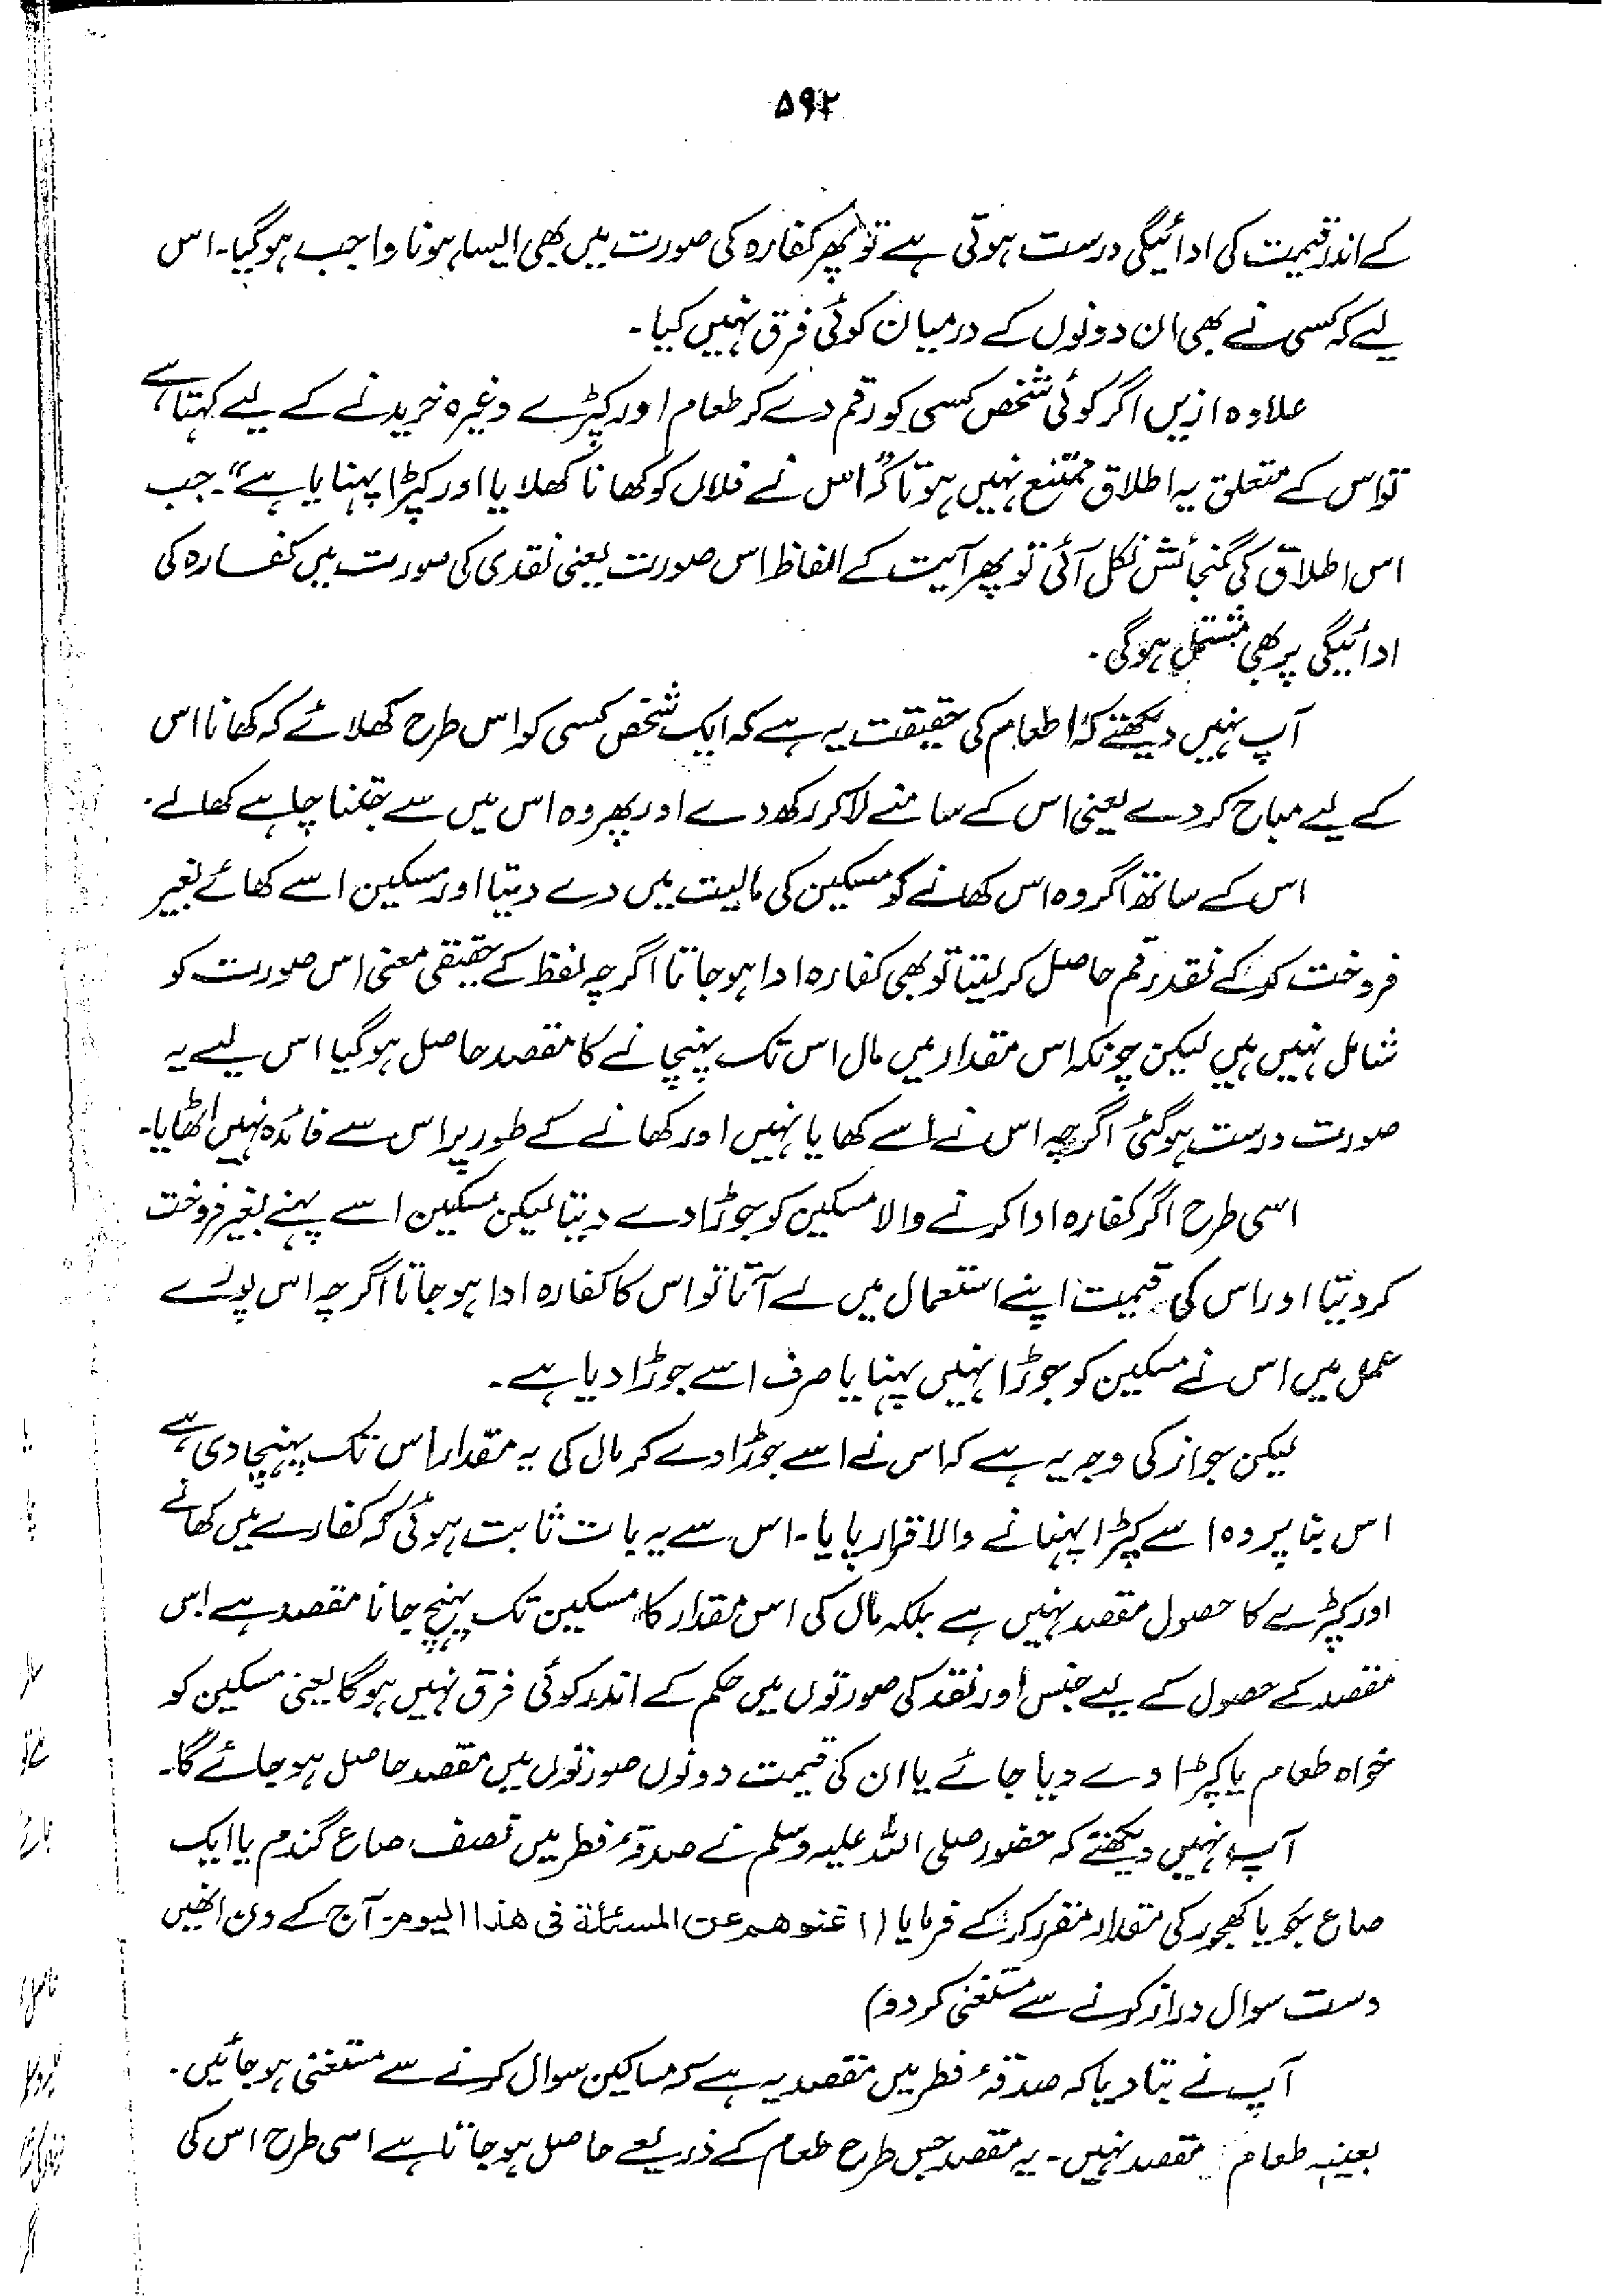 ۵۹۲
کے اندر قیمت کی ادائیگی درست ہوتی ہے تو پھر کفارہ کی صورت میں بھی ایسا ہونا واجب ہوگیا۔ اس
لیے کہ کسی نے بھی ان دونوں کے درمیان کوئی فرق نہیں کیا۔
علاوہ ازیں اگر کوئی شخص کسی کو رقم دے کر طعام اور کپڑے وغیرہ خریدنے کے لیے کہتا ہے
تو اس کے متعلق یہ اطلاق ممتنع نہیں ہوتا کہ "اس نے فلاں کو کھانا کھلایا اور کپڑا پہنایا ہے"۔ جب
اس اطلاق کی گنجائش نکل آئی تو پھر آیت کے الفاظ اس صورت یعنی نقدی کی صورت میں کفارہ کی
ادائیگی پر بھی مشتمل ہوگی۔
آپ نہیں دیکھتے کہ اطعام کی حقیقت یہ ہے کہ ایک شخص کسی کو اس طرح کھلائے کہ کھانا اس
کے لیے مباح کر دے یعنی اس کے سامنے لا کر رکھ دے اور پھر وہ اس میں سے جتنا چاہے کھالے۔
اس کے ساتھ اگر وہ اس کھانے کو مسکین کی مالیت میں دے دیتا اور مسکین اسے کھائے بغیر
فروخت کر کے نقد رقم حاصل کر لیتا تو بھی کفارہ ادا ہو جاتا اگرچہ لفظ کے حقیقی معنی اس صورت کو
شامل نہیں ہیں لیکن چونکہ اس مقدار میں مال اس تک پہنچانے کا مقصد حاصل ہوگیا اس لیے یہ
صورت درست ہوگئی اگرچہ اس نے اسے کھایا نہیں اور کھانے کے طور پر اس سے فائدہ نہیں اٹھایا۔
اسی طرح اگر کفارہ ادا کرنے والا مسکین کو جوڑا دے دیتا لیکن مسکین اسے پہنے بغیر فروخت
کر دیتا اور اس کی قیمت اپنے استعمال میں لے آتا تو اس کا کفارہ ادا ہو جاتا اگرچہ اس پورے
عمل میں اس نے مسکین کو جوڑا نہیں پہنایا صرف اسے جوڑا دیا ہے۔
لیکن جواز کی وجہ یہ ہے کہ اس نے اسے جوڑا دے کر مال کی یہ مقدار اس تک پہنچا دی ہے
اس بنا پر وہ اسے کپڑا پہنانے والا قرار پایا۔ اس سے یہ بات ثابت ہوئی کہ کفارے میں کھانے
اور کپڑے کا حصول مقصد نہیں ہے بلکہ مال کی اس مقدار کا مسکین تک پہنچ جانا مقصد ہے اس
مقصد کے حصول کے لیے جنس اور نقد کی صورتوں میں حکم کے اندر کوئی فرق نہیں ہوگا یعنی مسکین کو
خواہ طعام یا کپڑا دے دیا جائے یا ان کی قیمت دونوں صورتوں میں مقصد حاصل ہو جائے گا۔
آپ نہیں دیکھتے کہ حضور صلی اللہ علیہ وسلم نے صدقۂ فطر میں نصف صاع گندم یا ایک
صاع جَو یا کھجور کی مقدار مقرر کر کے فرمایا (اغنوھم عن المسئلة فی ھذا الیوم۔ آج کے دن انھیں
دست سوال دراز کرنے سے مستغنی کر دو)
آپ نے بتا دیا کہ صدقۂ فطر میں مقصد یہ ہے کہ مساکین سوال کرنے سے مستغنی ہو جائیں۔
بعینہٖ طعام مقصد نہیں۔ یہ مقصد جس طرح طعام کے ذریعے حاصل ہو جاتا ہے اسی طرح اس کی